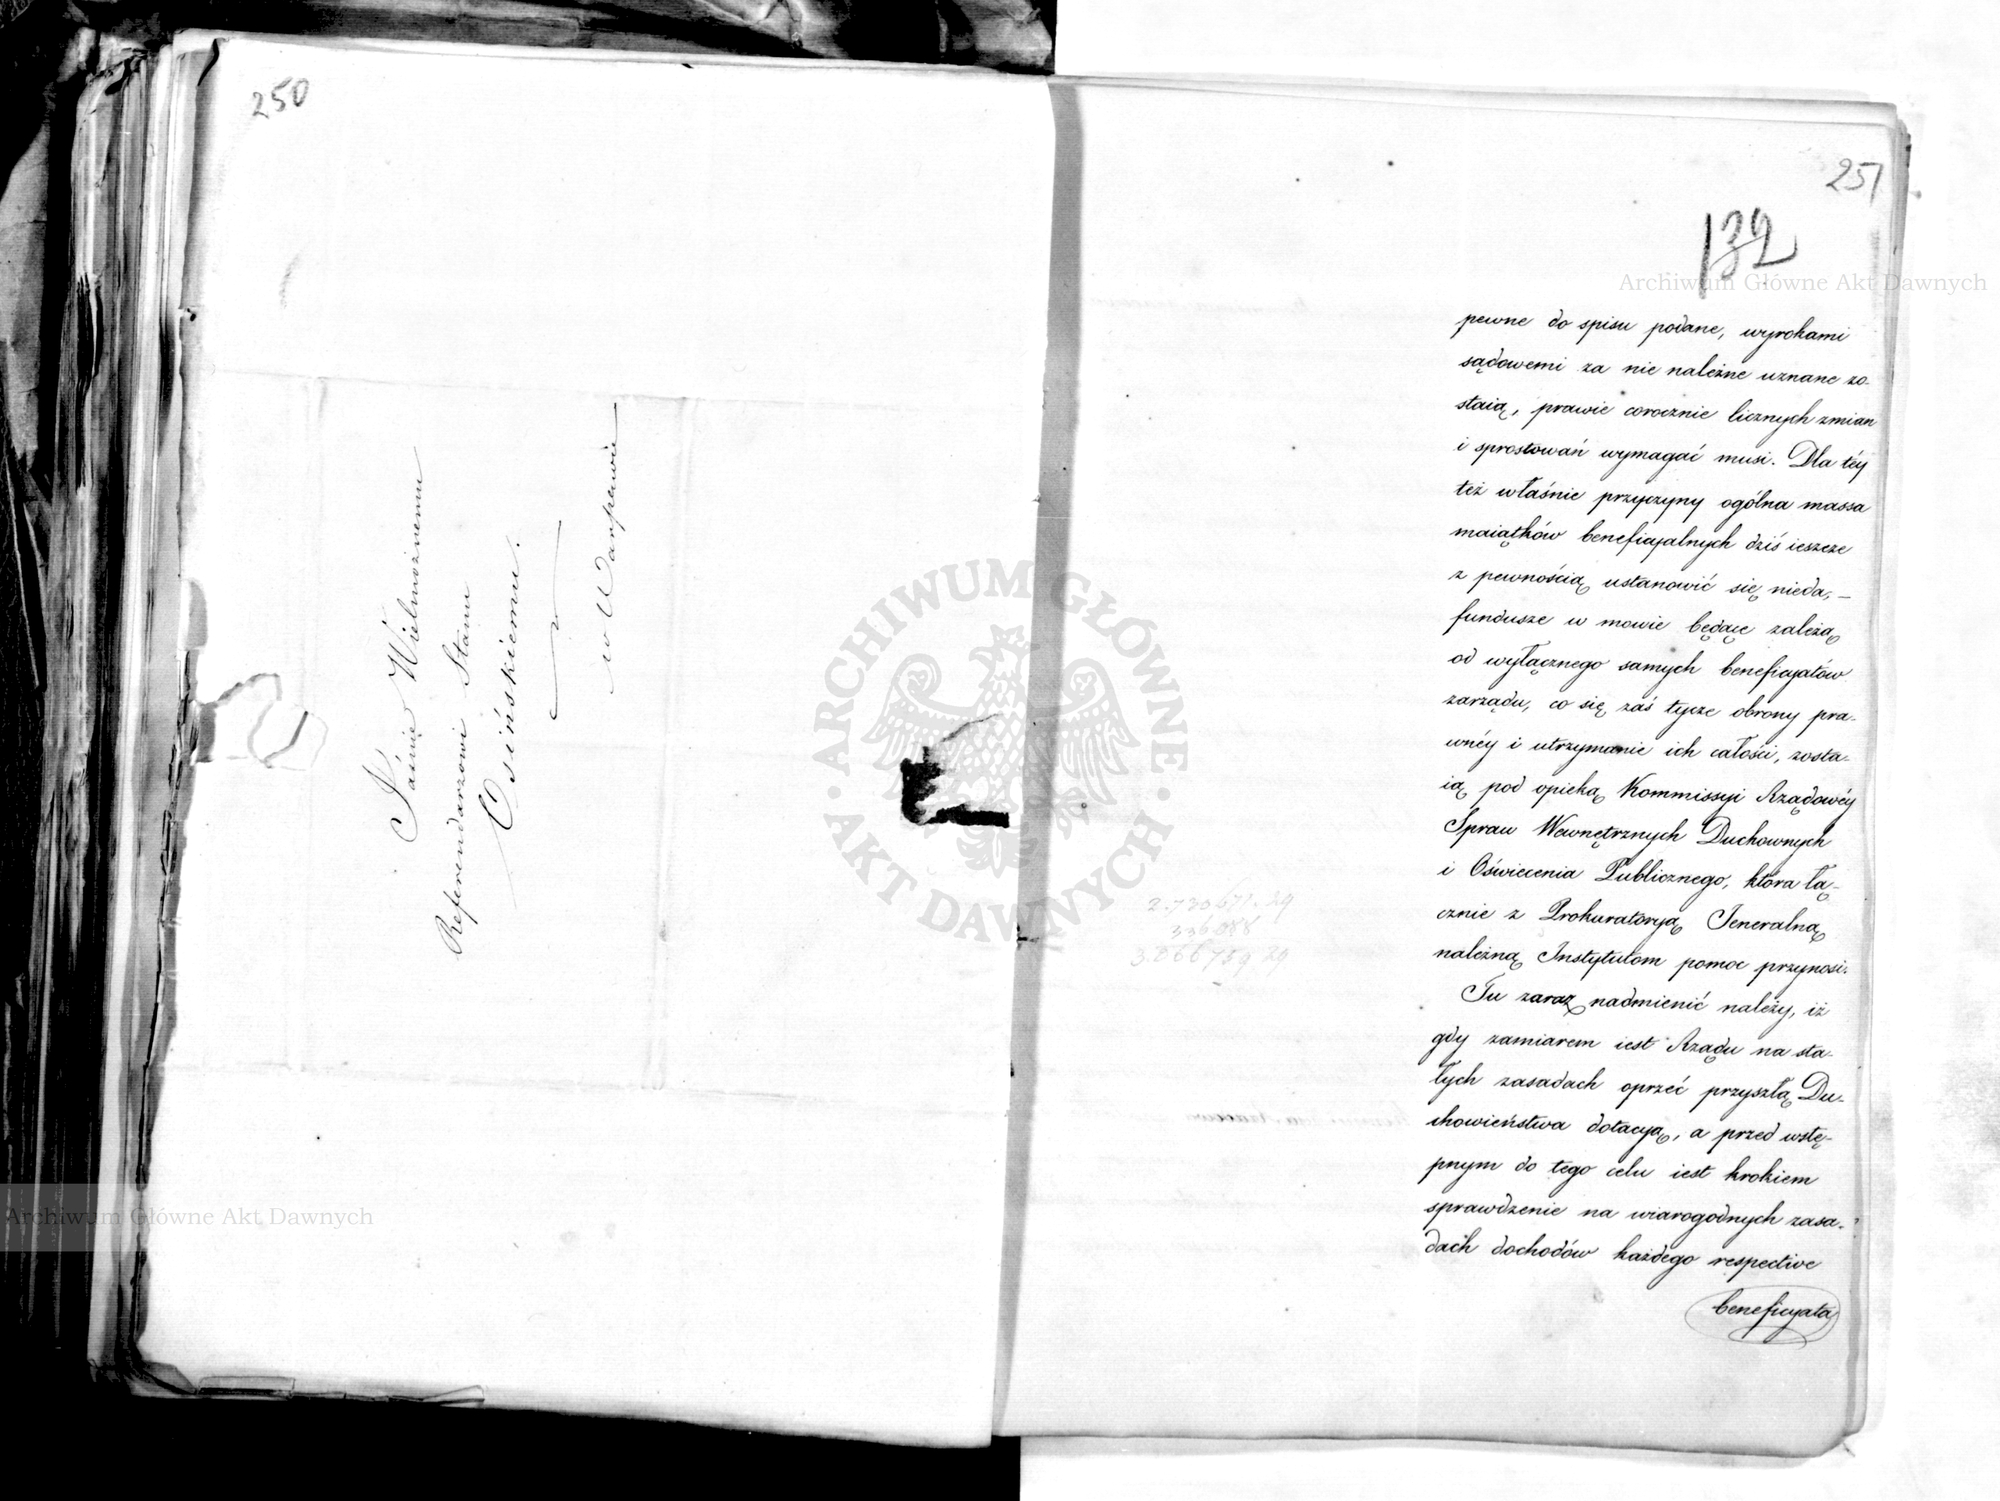 250
Jaśnie Wielmożnemu
Referendarzowi Stanu
Osińskiemu.
w Warszawie
251
132
pewne do spisu podane, wyrokami
sądowemi za nie należne uznane zo-
staią, prawie corocznie licznych zmian
i sprostowań wymagać musi. Dla téy
też właśnie przyczyny ogólna massa
maiątków beneficyalnych dziś ieszcze
z pewnością ustanowić się nieda, —
fundusze w mowie będące zależą
od wyłącznego samych beneficyatów
zarządu, co się zaś tycze obrony pra-
wnéy i utrzymanie ich całości, zosta-
ią pod opieką Kommissyi Rządowéy
Spraw Wewnętrznych Duchownych
i Oświecenia Publicznego, która łą-
cznie z Prokuratoryą Jeneralną
należną Instytutom pomoc przynosi.
Tu zaraz nadmienić należy, iż
gdy zamiarem iest Rządu na sta-
łych zasadach oprzeć przyszłą Du-
chowieństwa dotacyą, a przed wstę-
pnym do tego celu iest krokiem
sprawdzenie na wiarogodnych zasa-
dach dochodów każdego respective
beneficyata
2.730671.29
336088
3.066759 29
ARCHIWUM GŁÓWNE
AKT DAWNYCH
Archiwum Główne Akt Dawnych
Archiwum Główne Akt Dawnych